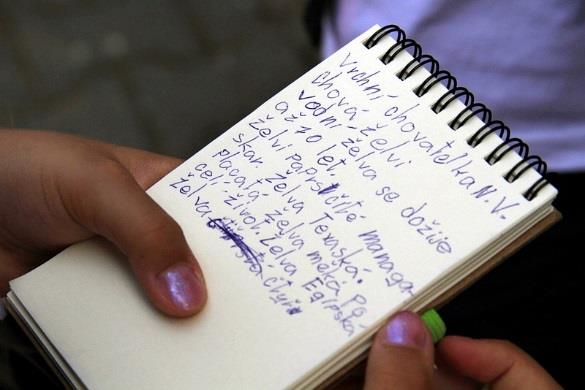 Vrchní chovatelka N.V.
chová želvi
vodní želva se dožije
až 70 let.
želvi papršlčité managa
skar. Želva Texaská.
placatá želva měká po
celí život. Želva Egipska
želva čtyři